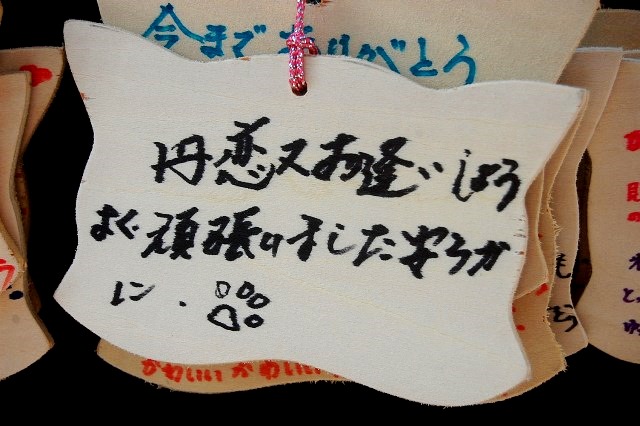 今までありがとう
丹恋又お逢いしましょう
よく頑張りました安らか
に、
かわいい かわいい